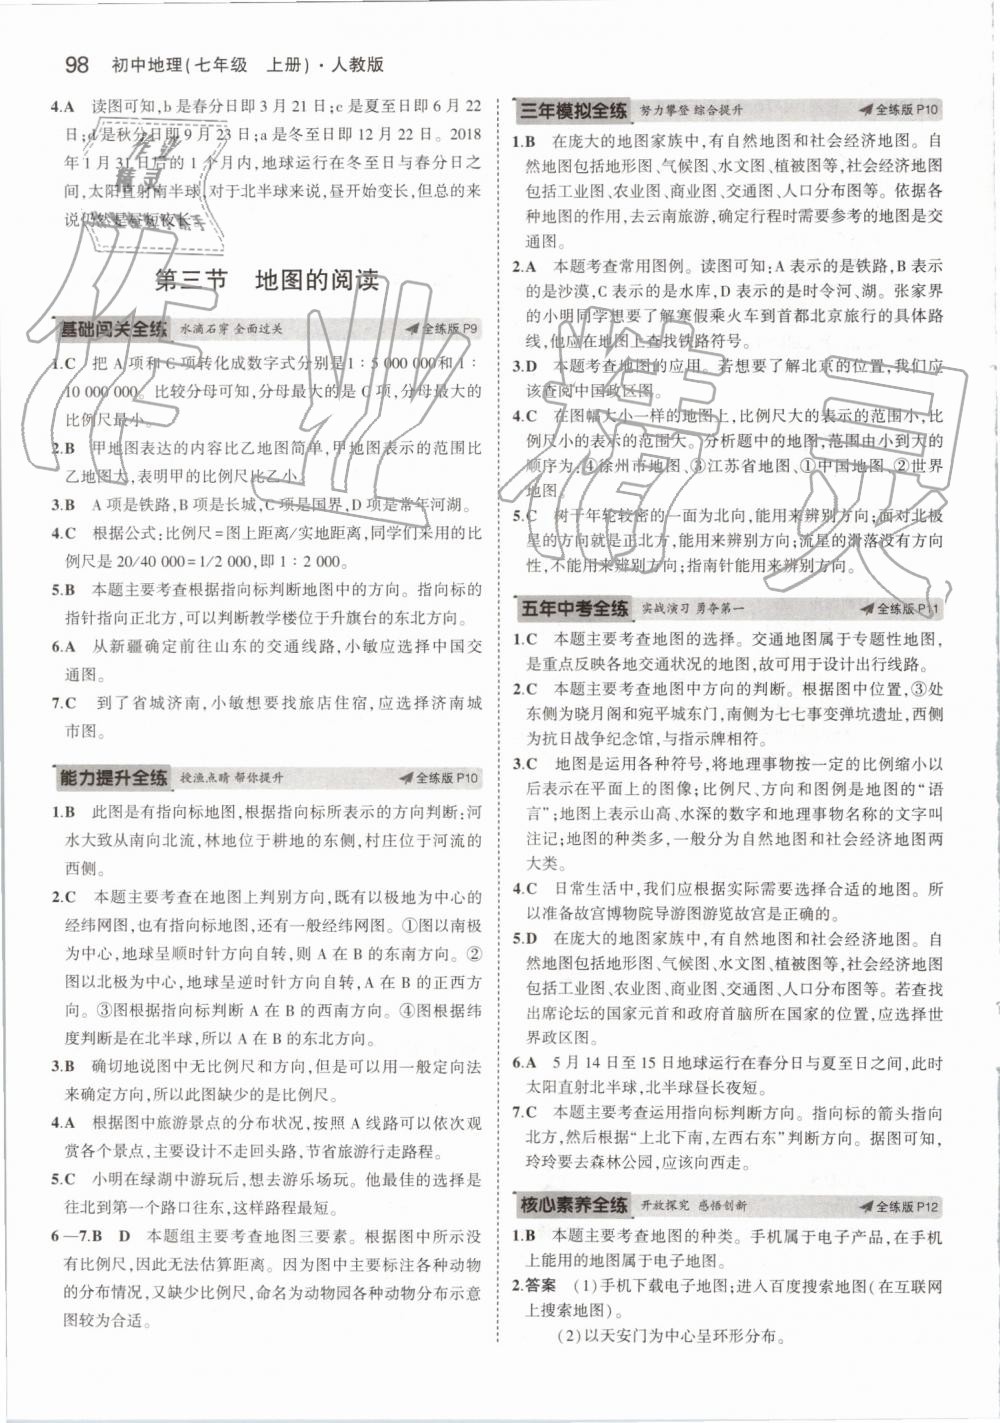 98 初中地理(七年级 上册)·人教版
4.A 读图可知,b是春分日即3月21日;c是夏至日即6月22
日;d是秋分日即9月23日;a是冬至日即12月22日。2018
年1月31日后的1个月内,地球运行在冬至日与春分日之
间,太阳直射南半球,对于北半球来说,昼开始变长,但总的来
说仍然是昼短夜长。
第三节 地图的阅读
基础闯关全练 水滴石穿 全面过关 全练版P9
1.C 把A项和C项转化成数字式分别是1∶5 000 000和1∶
10 000 000。比较分母可知,分母最大的是C项,分母最大的
比例尺最小。
2.B 甲地图表达的内容比乙地图简单,甲地图表示的范围比
乙地图大,表明甲的比例尺比乙小。
3.B A项是铁路,B项是长城,C项是国界,D项是常年河湖。
4.C 根据公式:比例尺=图上距离/实地距离,同学们采用的比
例尺是20/40 000=1/2 000,即1∶2 000。
5.B 本题主要考查根据指向标判断地图中的方向。指向标的
指针指向正北方,可以判断教学楼位于升旗台的东北方向。
6.A 从新疆确定前往山东的交通线路,小敏应选择中国交
通图。
7.C 到了省城济南,小敏想要找旅店住宿,应选择济南城
市图。
能力提升全练 授渔点睛 帮你提升 全练版P10
1.B 此图是有指向标地图,根据指向标所表示的方向判断:河
水大致从南向北流,林地位于耕地的东侧,村庄位于河流的
西侧。
2.C 本题主要考查在地图上判别方向,既有以极地为中心的
经纬网图,也有指向标地图,还有一般经纬网图。①图以南极
为中心,地球呈顺时针方向自转,则A在B的东南方向。②
图以北极为中心,地球呈逆时针方向自转,A在B的正西方
向。③图根据指向标判断A在B的西南方向。④图根据纬
度判断是在北半球,所以A在B的东北方向。
3.B 确切地说图中无比例尺和方向,但是可以用一般定向法
来确定方向,所以此图缺少的是比例尺。
4.A 根据图中旅游景点的分布状况,按照A线路可以依次观
赏各个景点,主要设计不走回头路,节省旅行走路程。
5.C 小明在绿湖中游玩后,想去游乐场玩。他最佳的选择是
往北到第一个路口往东,这样路程最短。
6—7.B D 本题组主要考查地图三要素。图中所示没有
比例尺,因此无法估算距离。因为图中主要标注各种动物
的分布情况,又缺少比例尺,命名为动物园各种动物分布示意
图较为合适。
三年模拟全练 努力攀登 综合提升 全练版P10
1.B 在庞大的地图家族中,有自然地图和社会经济地图。自
然地图包括地形图、气候图、水文图、植被图等,社会经济地图
包括工业图、农业图、商业图、交通图、人口分布图等。依据各
种地图的作用,去云南旅游,确定行程时需要参考的地图是交
通图。
2.A 本题考查常用图例。读图可知:A表示的是铁路,B表示
的是沙漠,C表示的是水库,D表示的是时令河、湖。张家界
的小明同学想要了解寒假乘火车到首都北京旅行的具体路
线,他应在地图上查找铁路线。
3.D 本题考查地图的应用。若想要了解北京的位置,我们应
该查阅中国政区图。
4.C 在图幅大小一样的地图上,比例尺大的表示的范围小,比
例尺小的表示的范围大。分析题中的地图,范围由小到大的
顺序为:④徐州市地图、③江苏省地图、①中国地图、②世界
地图。
5.C 树干年轮较密的一面为北向,能用来辨别方向;面对北极
星的方向就是正北方,能用来辨别方向;流星的滑落没有方向
性,不能用来辨别方向;指南针能用来辨别方向。
五年中考全练 实战演习 勇夺第一 全练版P11
1.C 本题主要考查地图的选择。交通地图属于专题性地图,
是重点反映各地交通状况的地图,故可用于设计出行线路。
2.C 本题主要考查地图中方向的判断。根据图中位置,③处
东侧为晓月阁和宛平城东门,南侧为七七事变弹坑遗址,西侧
为抗日战争纪念馆,与指示牌相符。
3.C 地图是运用各种符号,将地理事物按一定的比例缩小以
后表示在平面上的图像;比例尺、方向和图例是地图的“语
言”;地图上表示山高、水深的数字和地理事物名称的文字叫
注记;地图的种类多,一般分为自然地图和社会经济地图两
大类。
4.C 日常生活中,我们应根据实际需要选择合适的地图。所
以准备故宫博物院导游图游览故宫是正确的。
5.D 在庞大的地图家族中,有自然地图和社会经济地图。自
然地图包括地形图、气候图、水文图、植被图等,社会经济地图
包括工业图、农业图、商业图、交通图、人口分布图等。若查找
出席论坛的国家元首和政府首脑所在国家的位置,应选择世
界政区图。
6.A 5月14日至15日地球运行在春分日与夏至日之间,此时
太阳直射北半球,北半球昼长夜短。
7.C 本题主要考查运用指向标判断方向。指向标的箭头指向
北方,然后根据“上北下南,左西右东”判断方向。据图可知,
玲玲要去森林公园,应该向西走。
核心素养全练 开放探究 感悟创新 全练版P12
1.B 本题主要考查地图的种类。手机属于电子产品,在手机
上能用的地图属于电子地图。
2.答案 (1)手机下载电子地图;进入百度搜索地图(在互联网
上搜索地图)。
(2)以天安门为中心呈环形分布。
作业精灵
作业精灵